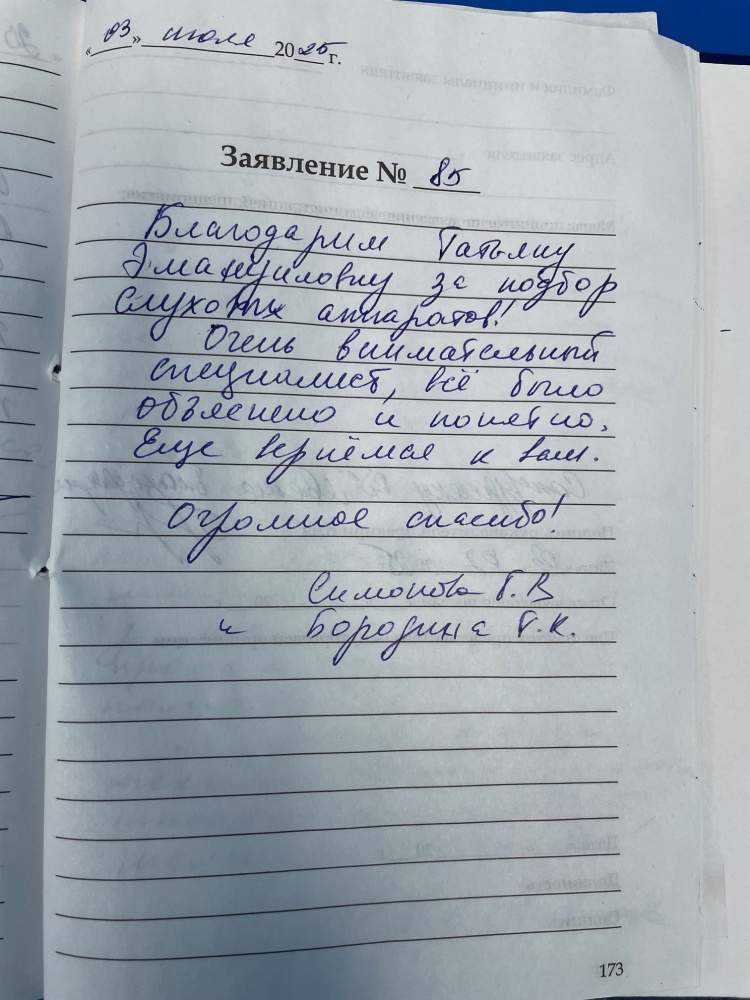 « 03 » июле 2025 г.
Заявление № 85
Благодарим Татьяну
Эмануиловну за подбор
слуховых аппаратов!
Очень внимательный
специалист, всё было
объяснено и понятно.
Еще вернёмся к вам.
Огромное спасибо!
Симонова Г.В
и Бородина Г.К.
173